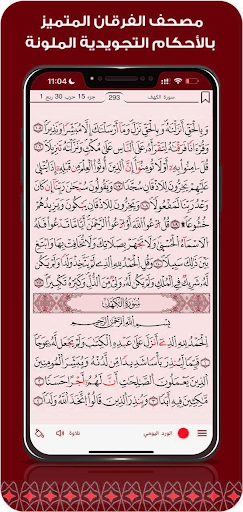 مصحف الفرقان المتميز
بالأحكام التجويدية الملونة
11:04
سورة الكهف
293
جزء 15 حزب 30 ربع 1
وَبِالْحَقِّ أَنزَلْنَاهُ وَبِالْحَقِّ نَزَلَ وَمَا أَرْسَلْنَاكَ إِلَّا مُبَشِّرًا وَنَذِيرًا
وَقُرْءَانًا فَرَقْنَاهُ لِتَقْرَأَهُ عَلَى النَّاسِ عَلَى مُكْثٍ وَنَزَّلْنَاهُ تَنزِيلًا
قُلْ ءَامِنُوا بِهِ أَوْ لَا تُؤْمِنُوا إِنَّ الَّذِينَ أُوتُوا الْعِلْمَ مِن قَبْلِهِ إِذَا يُتْلَى
عَلَيْهِمْ يَخِرُّونَ لِلْأَذْقَانِ سُجَّدًا وَيَقُولُونَ سُبْحَانَ رَبِّنَا إِن كَانَ
وَعْدُ رَبِّنَا لَمَفْعُولًا وَيَخِرُّونَ لِلْأَذْقَانِ يَبْكُونَ وَيَزِيدُهُمْ
خُشُوعًا قُلِ ادْعُوا اللَّهَ أَوِ ادْعُوا الرَّحْمَنَ أَيًّا مَّا تَدْعُوا فَلَهُ
الْأَسْمَاءُ الْحُسْنَى وَلَا تَجْهَرْ بِصَلَاتِكَ وَلَا تُخَافِتْ بِهَا
وَابْتَغِ بَيْنَ ذَلِكَ سَبِيلًا وَقُلِ الْحَمْدُ لِلَّهِ الَّذِي لَمْ يَتَّخِذْ وَلَدًا وَلَمْ يَكُن
لَّهُ شَرِيكٌ فِي الْمُلْكِ وَلَمْ يَكُن لَّهُ وَلِيٌّ مِّنَ الذُّلِّ وَكَبِّرْهُ تَكْبِيرًا
سُورَةُ الْكَهْفِ
بِسْمِ اللَّهِ الرَّحْمَنِ الرَّحِيمِ
الْحَمْدُ لِلَّهِ الَّذِي أَنزَلَ عَلَى عَبْدِهِ الْكِتَابَ وَلَمْ يَجْعَل لَّهُ عِوَجًا
قَيِّمًا لِّيُنذِرَ بَأْسًا شَدِيدًا مِّن لَّدُنْهُ وَيُبَشِّرَ الْمُؤْمِنِينَ
الَّذِينَ يَعْمَلُونَ الصَّالِحَاتِ أَنَّ لَهُمْ أَجْرًا حَسَنًا
مَّاكِثِينَ فِيهِ أَبَدًا وَيُنذِرَ الَّذِينَ قَالُوا اتَّخَذَ اللَّهُ وَلَدًا
الورد اليومي
تلاوة